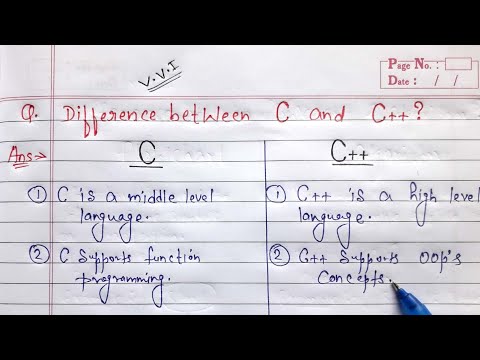 V.V.I
Page No. :
Date : / /
Q. Difference between C and C++?
Ans→
C
① C is a middle level
language.
② C Supports function
programming.
C++
① C++ is a high level
language.
② C++ Supports OOP's
Concepts.